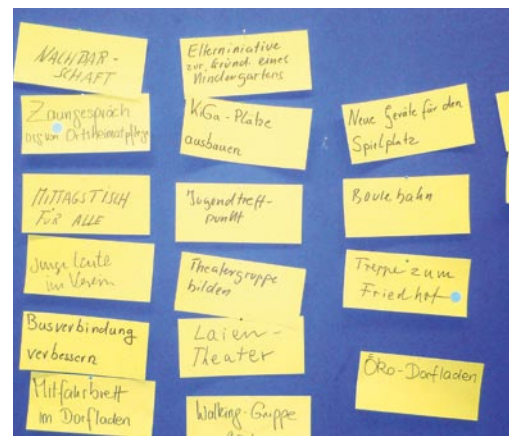 NACHBAR-
SCHAFT
Zaungespräch
Ortsheimatpflege
MITTAGSTISCH
FÜR ALLE
Junge Leute
im Verein
Busverbindung
verbessern
Mitfahrbrett
im Dorfladen
Elterniniative
zur Gründ. eines
Kindergartens
KiGa-Plätze
ausbauen
Jugendtreff-
punkt
Theatergruppe
bilden
Laien-
Theater
Walking-Gruppe
Neue Geräte für den
Spielplatz
Boulebahn
Treppe zum
Friedhof
Öko-Dorfladen